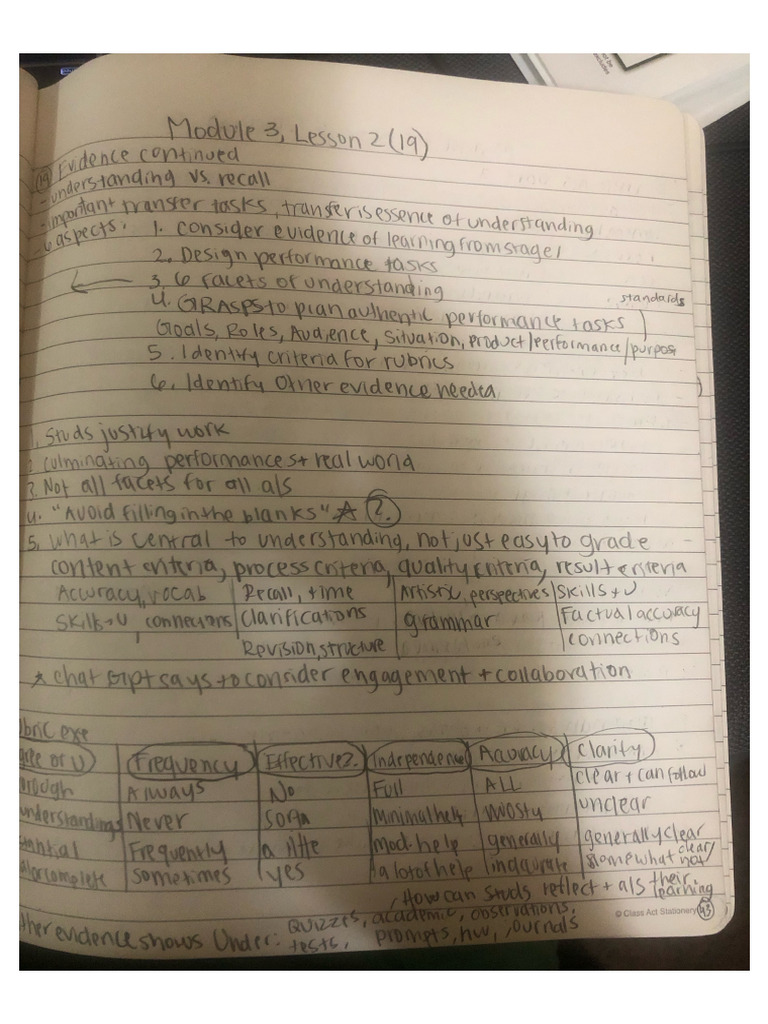 Module 3, Lesson 2 (19)
(19) Evidence continued
- understanding vs. recall
- important transfer tasks, transfer is essence of understanding
- 6 aspects: 1. Consider evidence of learning from stage 1
2. Design performance tasks
3. 6 facets of understanding
4. GRASPS to plan authentic performance tasks
standards
Goals, Roles, Audience, Situation, product/performance/purpos
5. Identify criteria for rubrics
6. Identify other evidence needed
1. Studs justify work
2. culminating performances + real world
3. Not all facets for all als
4. "Avoid filling in the blanks" ☆ 2.
5. What is central to understanding, not just easy to grade
content criteria, process criteria, quality criteria, result criteria
Accuracy, vocab | Recall, time | Artistic, perspectives | Skills + U
Skills + U, connections | Clarifications | grammar | Factual accuracy
Revision, structure | connections
☆ chat GPT says to consider engagement + collaboration
bric exe
ree or U | Frequency | Effective? | Independence | Accuracy | Clarity
orough | Always | No | Full | ALL | clear + can follow
understandings | Never | Sorta | minimal help | mostly | unclear
stantial | Frequently | a little | mod. help | generally | generally clear
complete | Sometimes | yes | a lot of help | inaccurate | somewhat clear/not
, How can studs reflect + als their learning
ther evidence shows Under: Quizzes, academic, observations,
tests, prompts, hw, journals
© Class Act Stationery 43